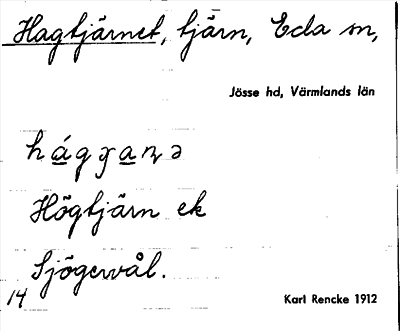 Hagtjärnet, tjärn, Eda sn,
Jösse hd, Värmlands län
Högtjärn ek
Sjögervål.
14
Karl Rencke 1912